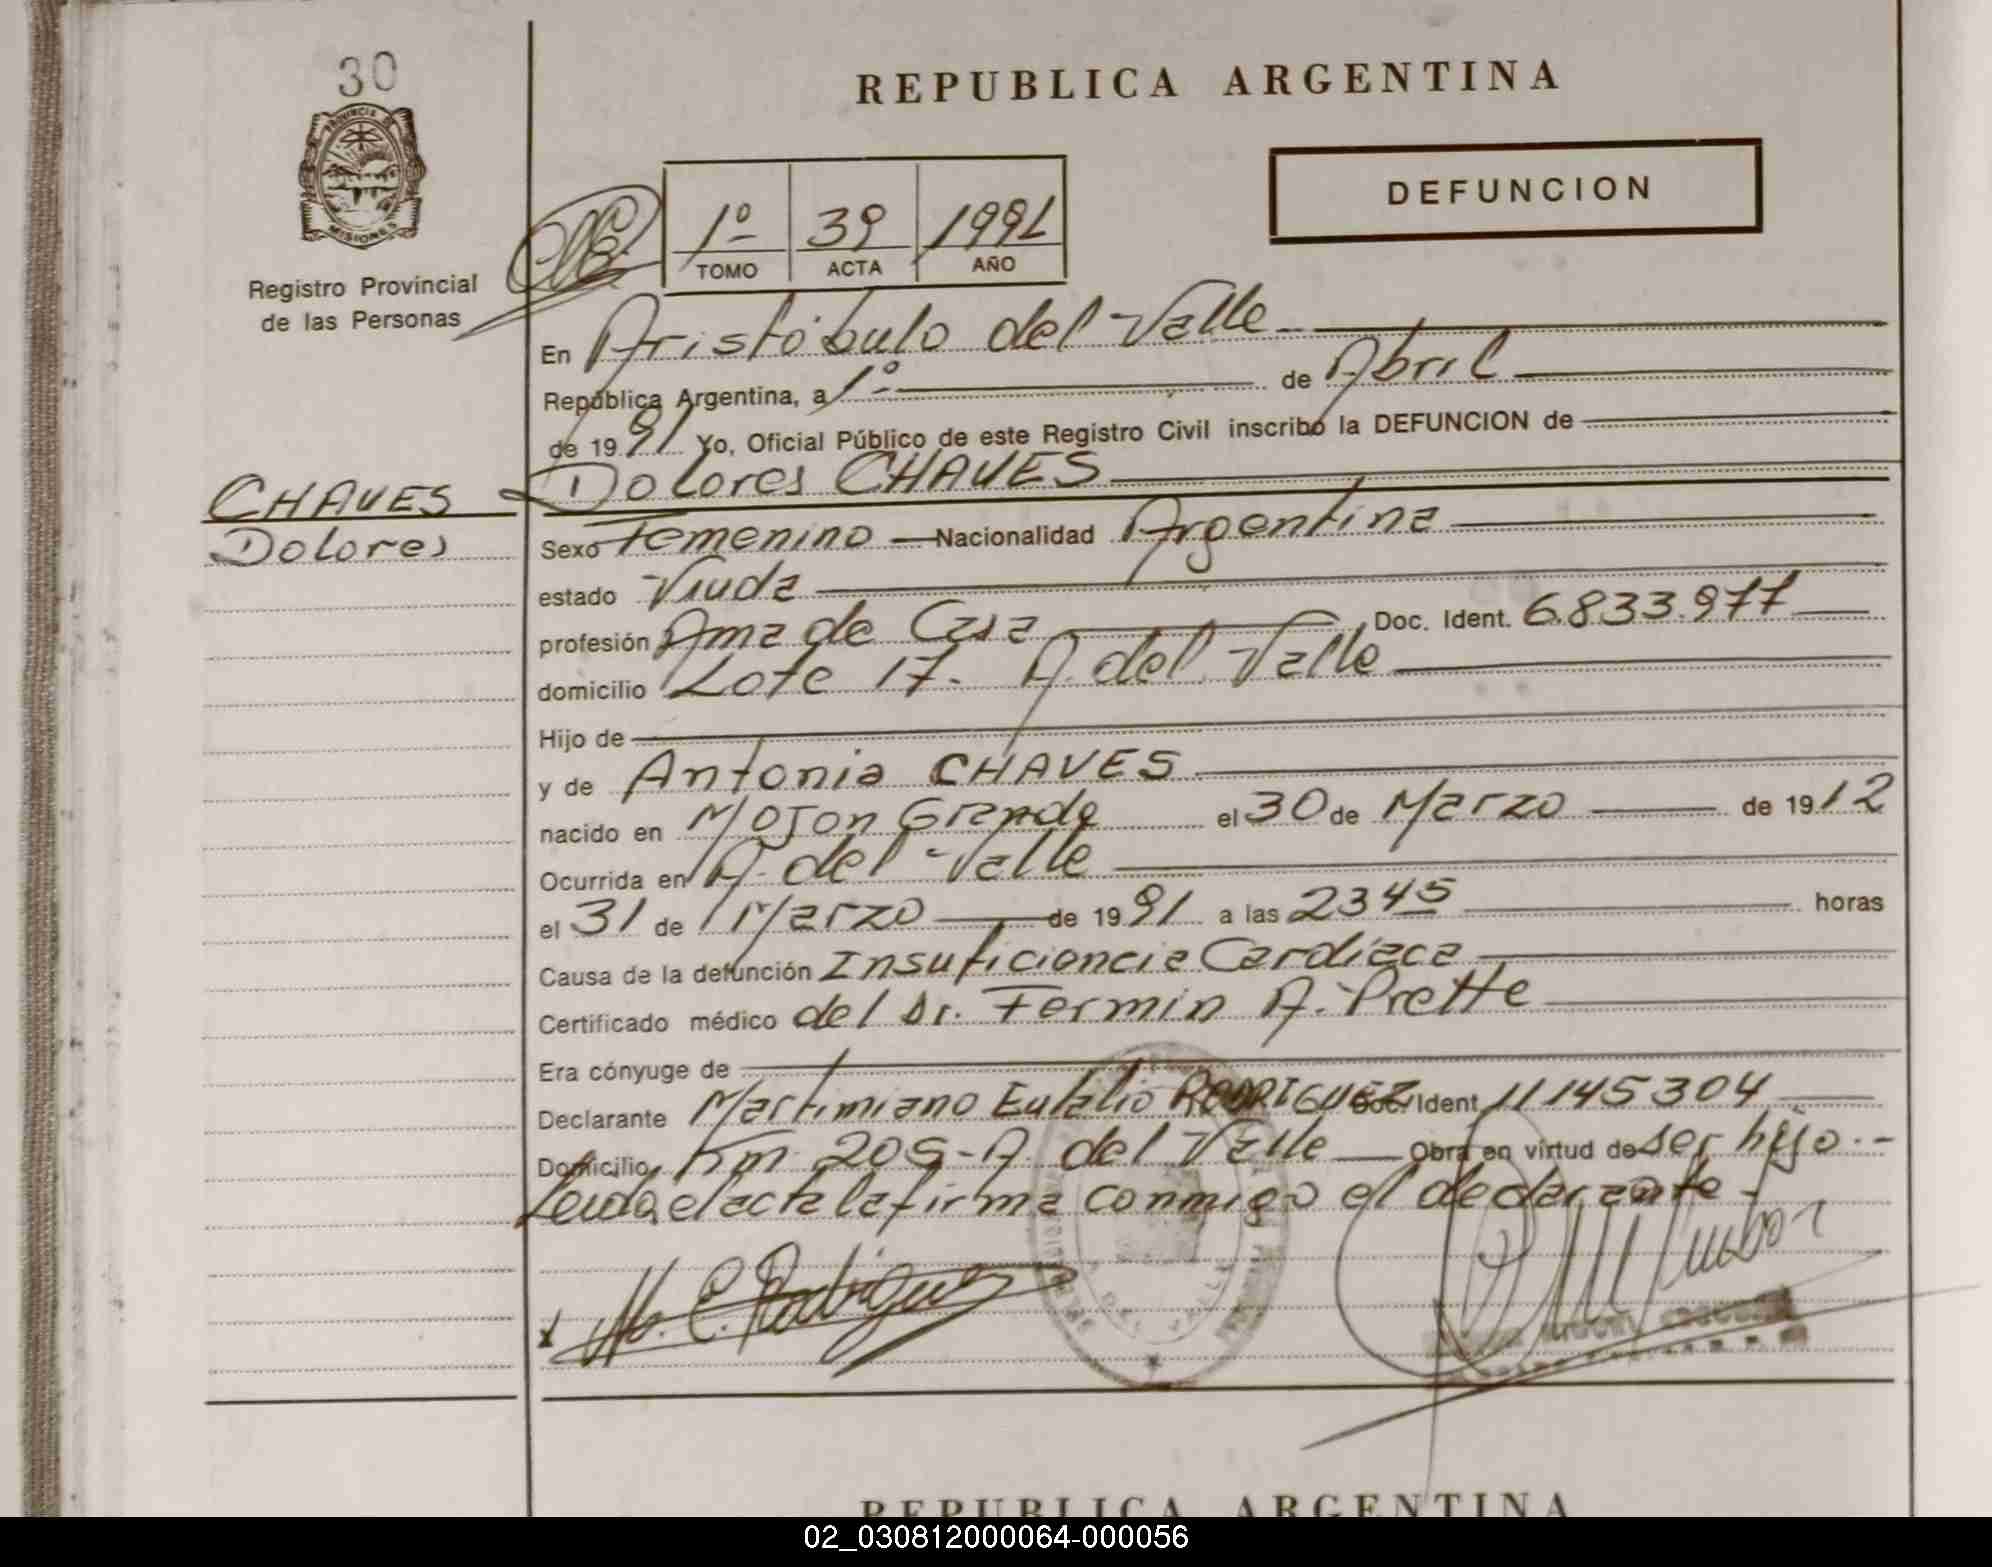 30
REPUBLICA ARGENTINA
PROVINCIA DE
MISIONES
DEFUNCION
1º 39 1991
TOMO ACTA AÑO
Registro Provincial
de las Personas
En Aristóbulo del Valle
República Argentina, a 1º de Abril
de 1991 Yo, Oficial Público de este Registro Civil inscribo la DEFUNCION de
CHAVES
Dolores
Dolores CHAVES
Sexo Femenino Nacionalidad Argentina
estado Viuda
profesión Ama de Casa Doc. Ident. 6.833.977
domicilio Lote 17. A. del Valle
Hijo de
y de Antonia CHAVES
nacido en Mojon Grande el 30 de Marzo de 1912
Ocurrida en A. del Valle
el 31 de Marzo de 1991 a las 23 45 horas
Causa de la defunción Insuficiencia Cardíaca
Certificado médico del Dr. Fermin A. Prette
Era cónyuge de
Declarante Martimiano Eulalio RODRIGUEZ Doc. Ident 11145304
Domicilio Km 205-A. del Valle Obra en virtud de ser hijo.-
Leida el acta la firma conmigo el declarante-
x M. E. Rodriguez
DEL VALLE
REPUBLICA ARGENTINA
02_030812000064-000056